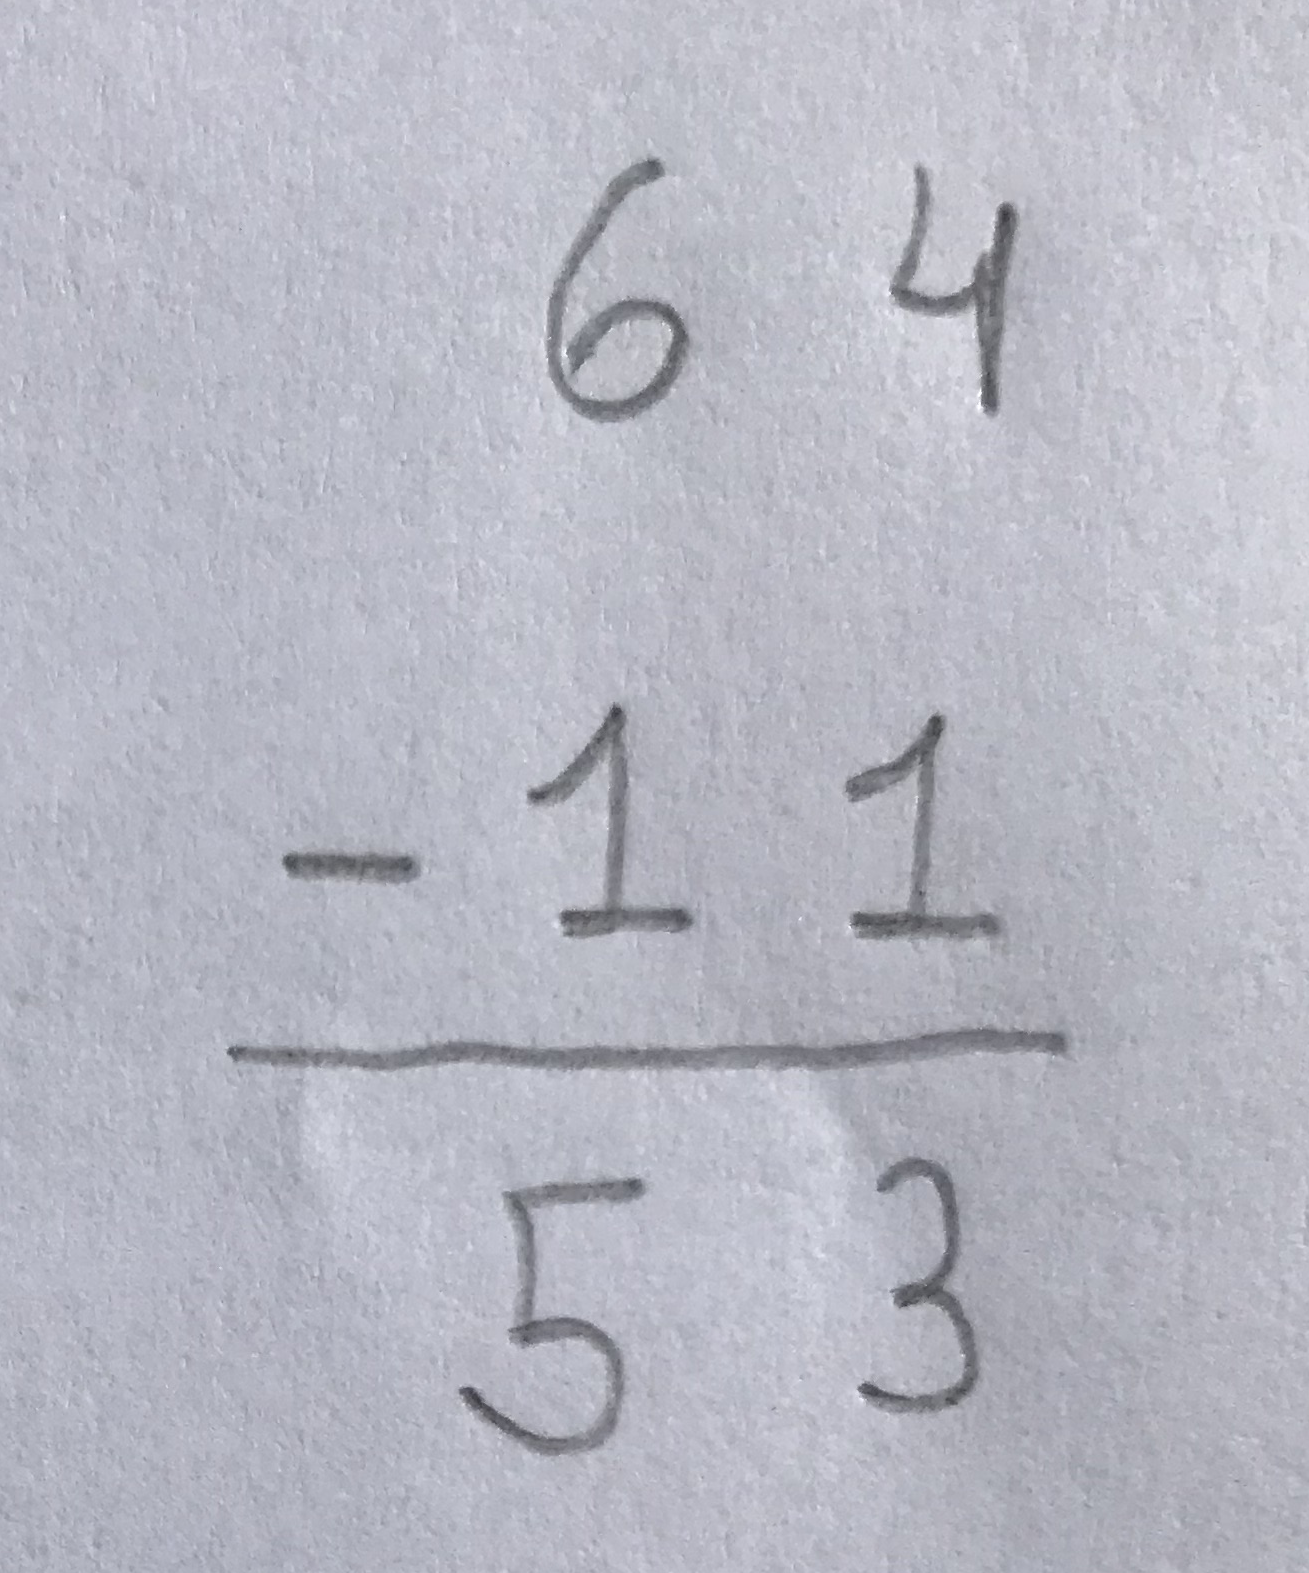 6 4
- 1 1
5 3